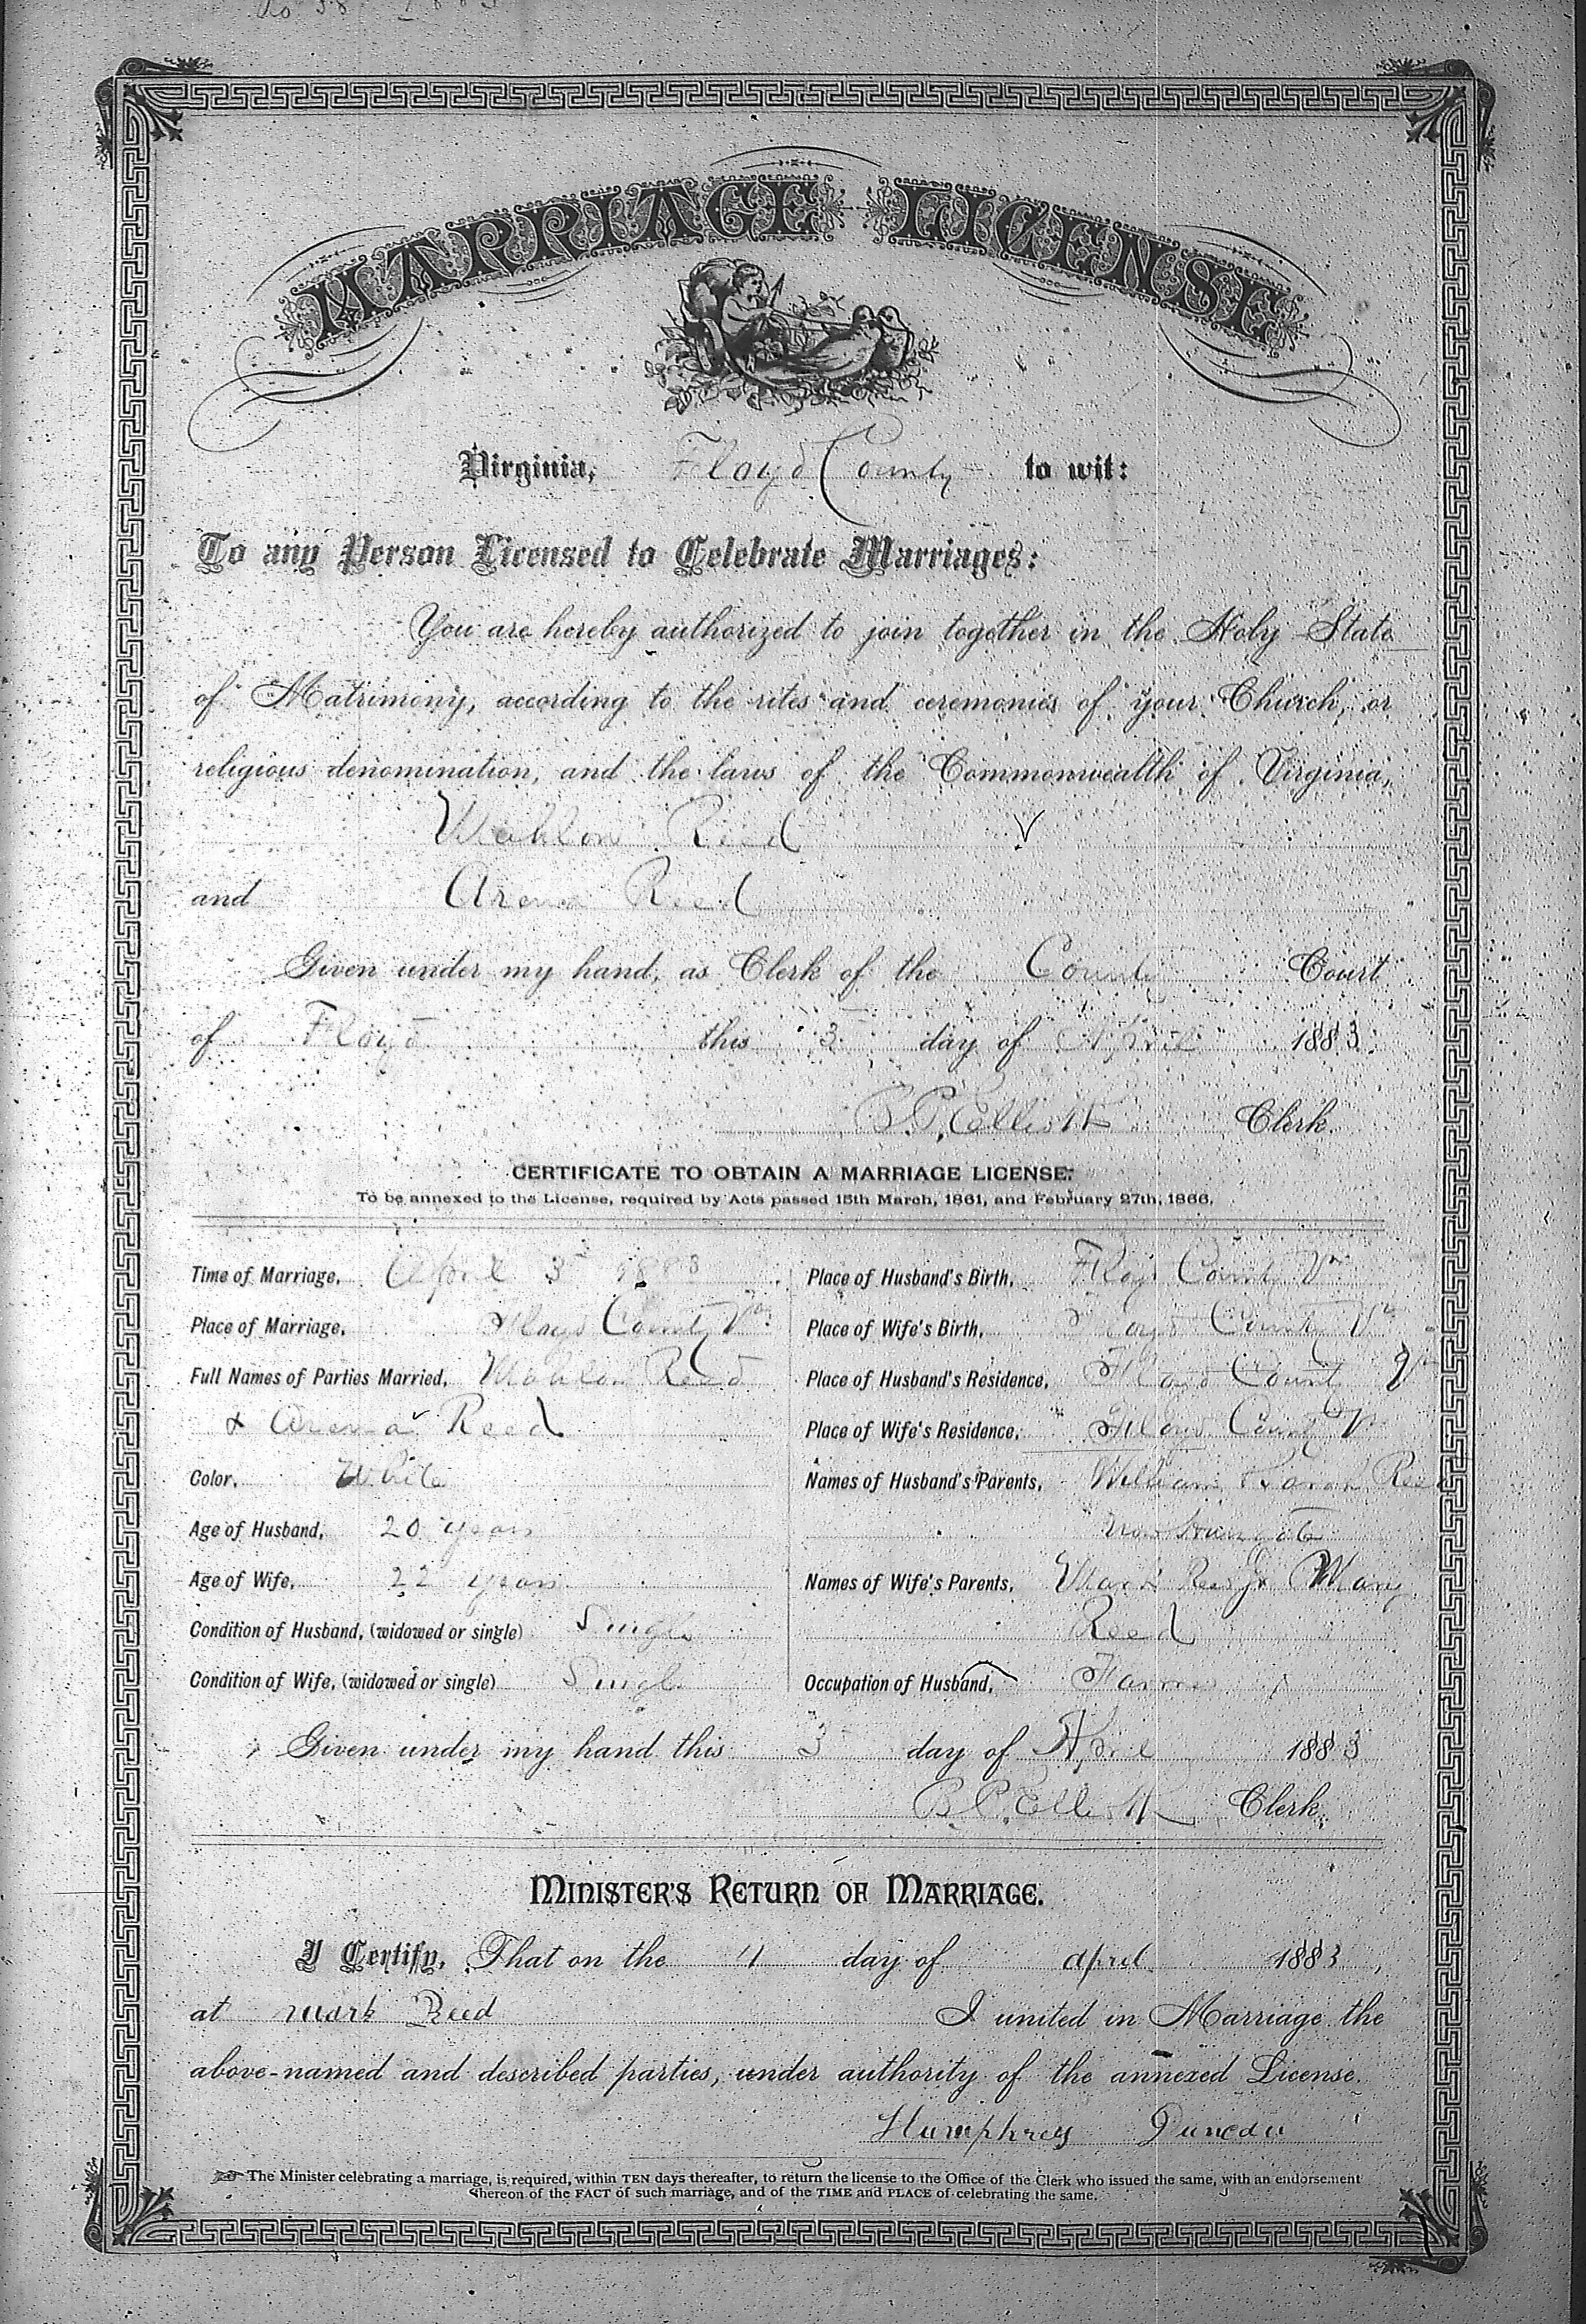 No 38 1883
MARRIAGE LICENSE
Virginia, Floyd County to wit:
To any Person Licensed to Celebrate Marriages:
You are hereby authorized to join together in the Holy State
of Matrimony, according to the rites and ceremonies of your Church, or
religious denomination, and the laws of the Commonwealth of Virginia,
Mahlon Reed
and Arena Reed
Given under my hand, as Clerk of the County Court
of Floyd this 3 day of April 1883.
B. P. Elliott Clerk.
CERTIFICATE TO OBTAIN A MARRIAGE LICENSE.
To be annexed to the License, required by Acts passed 15th March, 1861, and February 27th, 1866.
Time of Marriage, April 3 1883
Place of Marriage, Floyd County Va.
Full Names of Parties Married, Mahlon Reed
& Arena Reed
Color, White
Age of Husband, 20 years
Age of Wife, 22 years
Condition of Husband, (widowed or single) Single
Condition of Wife, (widowed or single) Single
Place of Husband's Birth, Floyd County Va
Place of Wife's Birth, Floyd County Va
Place of Husband's Residence, Floyd County Va
Place of Wife's Residence, Floyd County Va
Names of Husband's Parents, William & Sarah Reed
now
Names of Wife's Parents, Mark Reed Jr Mary
Reed
Occupation of Husband, Farmer
Given under my hand this 3 day of April 1883
B. P. Elliott Clerk.
MINISTER'S RETURN OF MARRIAGE.
I Certify, That on the day of april 1883,
at mark Reed I united in Marriage the
above-named and described parties, under authority of the annexed License.
Humphrey Duncan
The Minister celebrating a marriage, is required, within TEN days thereafter, to return the license to the Office of the Clerk who issued the same, with an endorsement
thereon of the FACT of such marriage, and of the TIME and PLACE of celebrating the same.